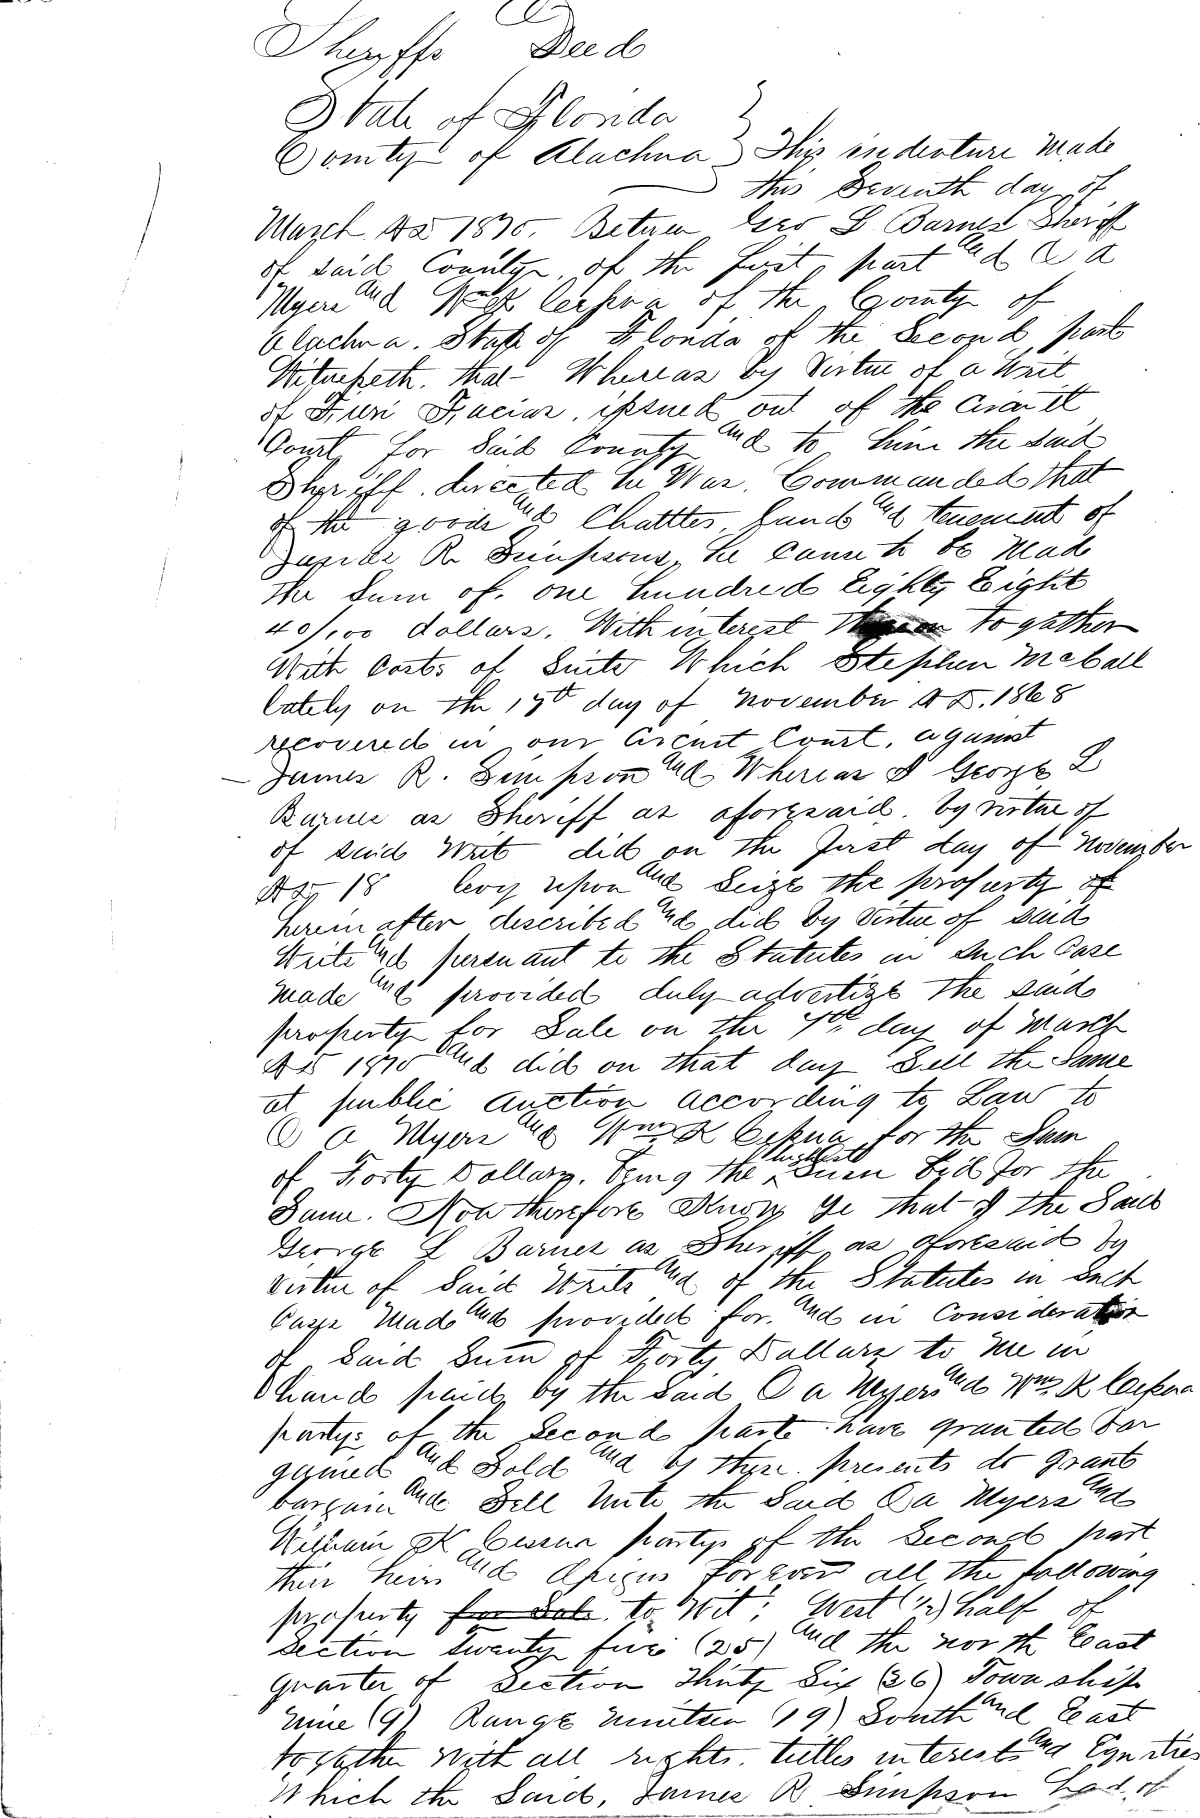 Sheriffs Deed
State of Florida
County of Alachua } This indenture Made
this Seventh day of
March AD 1870. Between Geo L Barnes Sheriff
of said County, of the first part and O A
Myers and Wm K Cessna of the County of
Alachua. State of Florida of the Second part
Witnesseth. that Whereas by Virtue of a Writ
of Fieri Facias. issued out of the Circuit
Court for Said County and to him the said
Sheriff. directed he Was. Commanded that
of the goods and Chattles, Lands and tenement of
James R. Simpsons, he cause to be Made
the Sum of. one hundred Eighty Eight
40/100 dollars. With interest to gather
With Costs of Suite Which Stephen McCall
lately on the 17th day of November AD. 1868
recovered in our Circuit Court. against
James R. Simpson and Whereas I George L
Barnes as Sheriff as aforesaid. by virtue of
of said Writ did on the first day of November
AD 18 levy upon and Seize the property of
herein after described and did by virtue of said
Write and persuant to the Statutes in Such Case
Made and provided duly advertize the said
property for Sale on the 7th day of March
AD 1870 and did on that day Sell the Same
at public auction according to Law to
O A Myers and Wm K Cessna for the Sum
of Forty Dollars. being the highest Sum bid for the
Same. Now therefore Know Ye that I the Said
George L Barnes as Sheriff as aforesaid by
Virtue of Said Write and of the Statutes in Such
Cases Made and provided for. and in Consideration
of Said Sum of Forty Dollars to Me in
hand paid by the Said O A Myers and Wm K Cessna
partys of the Second parte have granted Bar
gained and Sold and by these presents do grant
bargain and Sell Unto the Said O A Myers and
William K Cessna partys of the Second part
their heirs and Assigns forever all the following
property for Sale. to Wit: West (1/2) half of
Section twenty five (25) and the North East
quarter of Section Thirty Six (36) Township
Nine (9) Range Nineteen (19) South and East
together With all rights. tittles interests and Equities
Which the Said, James R. Simpson had. of